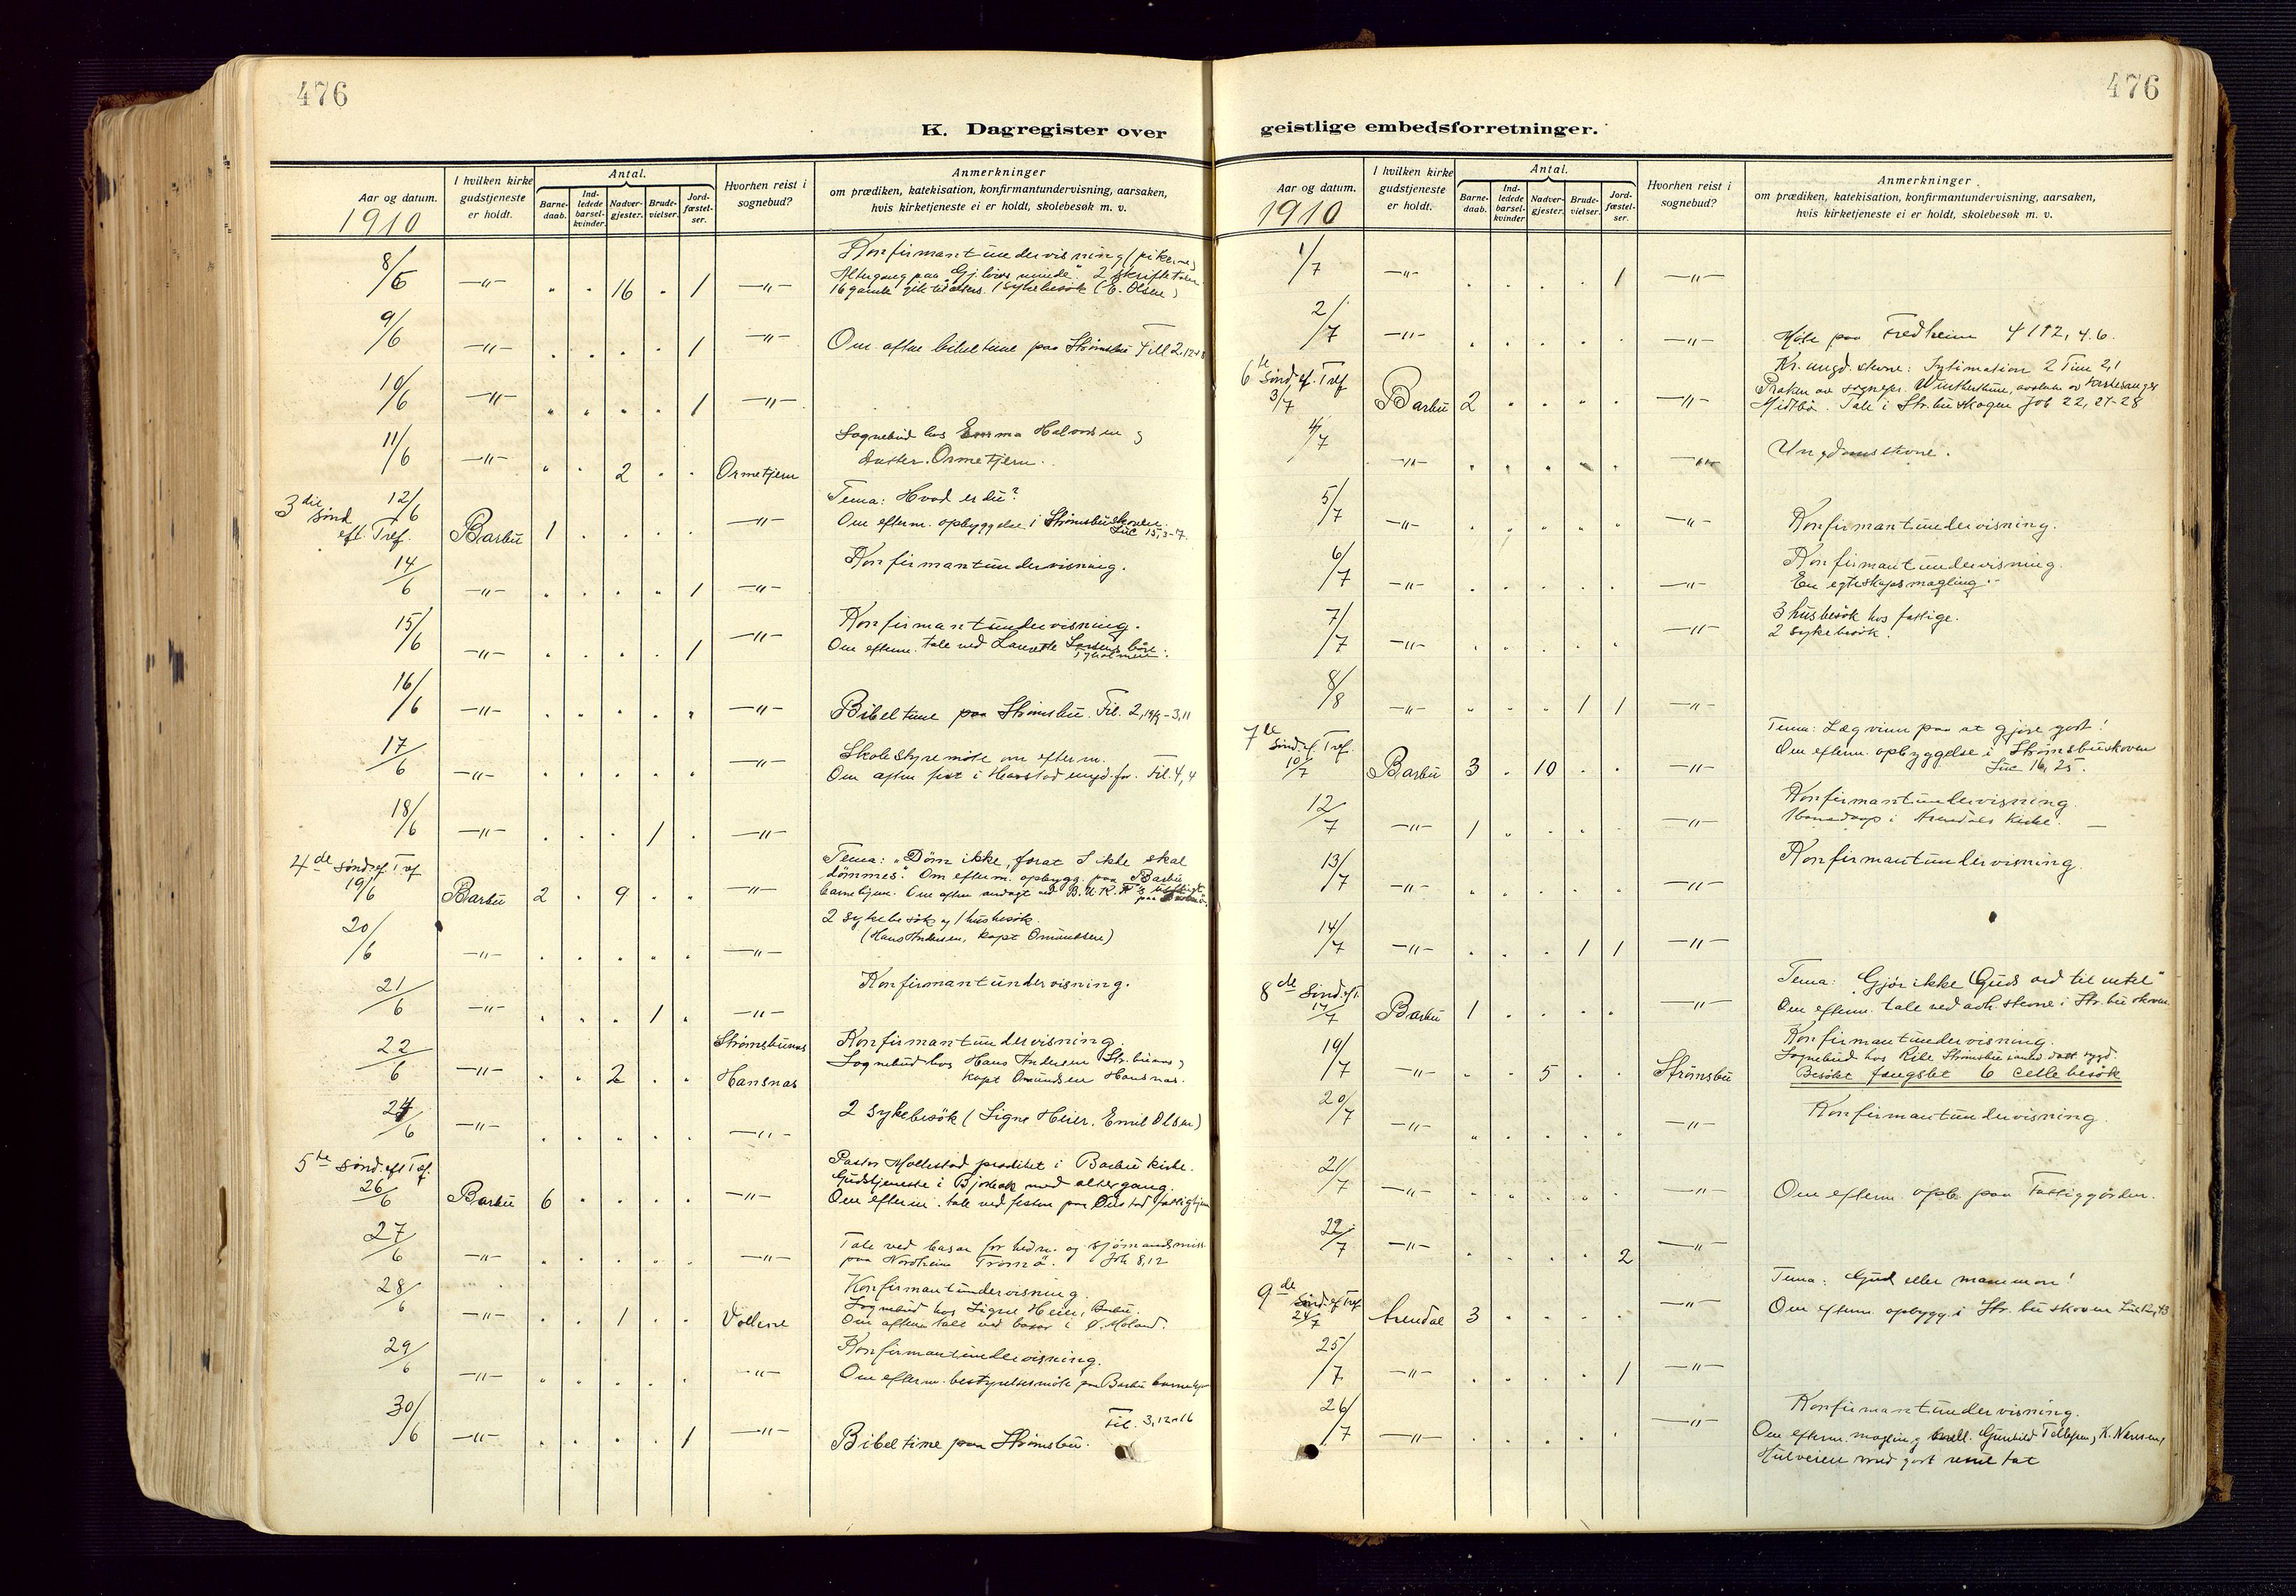 476
K. Dagregister over
Aar og datum.
1910
I hvilken kirke gudstjeneste er holdt.
Antal.
Barne-daab.
Ind-ledede barsel-kvinder.
Nadver-gjester.
Brude-vielser.
Jord-fæstel-ser.
Hvorhen reist i sognebud?
Anmerkninger
om prædiken, katekisation, konfirmantundervisning, aarsaken,
hvis kirketjeneste ei er holdt, skolebesøk m. v.
8/6 —"— " . 16 . 1 —"—
Konfirmantundervisning (pikerne)
Altergang paa "Gj.løvs minde". 2 skriftetaler
16 gamle gik til alters. 1 sykebesök (E. Olsen)
9/6 —"— . . . . 1 —"— Om aften bibeltime paa Strømsbu
10/6 —"— " . . . 1 —"—
11/6 —"— " . 2 . . Ormetjern
Sognebud hos Emma Halvorsen og
datter. Ormetjern.
3die sönd. eft. Tref. 12/6 Barbu 1 . . . . —"—
Tema: Hvad er du?
Om efterm. opbyggelse i Strømsbuskoven.
Luc 15, 3-7.
14/6 —"— . . . . 1 —"— Konfirmantundervisning.
15/6 —"— . . . . 1 —"— Konfirmantundervisning.
Om efterm. tale ved Laurette Larsens båre.
Tyholmen
16/6 —"— . . . . . —"— Bibeltime paa Strömsbu. Fil. 2,
17/6 —"— . . . . . —"— Skolestyremöte om efterm.
Om aften fest i Harstad ungd.for. Fil. 4, 4
18/6 —"— . . . 1 . —"—
4de sönd. ef. Tref 19/6 Barbu 2 . 9 . . —"—
Tema: "Döm ikke, forat I ikke skal
dömmes". Om efterm. opbygg. paa Barbu
barnehjem. Om aften andagt ved B. U. K. F's
20/6 —"— . . . . . —"— 2 sykebesök og 1 husbesök.
(Hans Andersen, kapt Omundsen)
21/6 —"— . . . 1 . —"— Konfirmantundervisning.
22/6 —"— . . 2 . . Strömsbunes
Hansnæs
Konfirmantundervisning.
Sognebud hos Hans Andersen Str.bunes og
kapt Omundsen Hansnæs.
24/6 —"— . . . . . —"— 2 sykebesök (Signe Heier, Emil Olsen)
5te sönd. eft Tref. 26/6 Barbu 6 . . . . —"—
Pastor Mollestad prædiket i Barbu kirke.
Gudstjeneste i Bjorbæk med altergang.
Om efterm. tale ved festen paa
27/6 —"— . . . . . —"— Tale ved basar for hedn. og sjömandsmiss.
paa Nordheim Tromö. Joh 8,12
28/6 —"— . . 1 . . Vollene
Konfirmantundervisning.
Sognebud hos Signe Heier, Barbu.
Om aftenen tale ved basar i Ø. Moland.
29/6 —"— . . . . . —"— Konfirmantundervisning.
Om efterm. bestyrelsesmöte paa Barbu barnehjem
30/6 —"— . . . . 1 —"— Fil. 3, 12-16
Bibeltime paa Strömsbu.
476
geistlige embedsforretninger.
Aar og datum.
1910
I hvilken kirke gudstjeneste er holdt.
Antal.
Barne-daab.
Ind-ledede barsel-kvinder
Nadver-gjester.
Brude-vielser.
Jord-fæstel-ser.
Hvorhen reist i sognebud?
Anmerkninger
om prædiken, katekisation, konfirmantundervisning, aarsaken,
hvis kirketjeneste ei er holdt, skolebesøk m. v.
1/7 —"— . . . . 1 —"—
2/7 —"— . . . . . —"— Möte paa Fredheim
6te sönd. ef. Tref 3/7 Barbu 2 . . . . —"—
Kr. ungd. stevne: 2 Tim 2,1
Præken av sognepr. Winterthun,
Tale i Str.buskogen Job 22, 21-28
4/7 —"— . . . . . —"— Ungdomsstevne.
5/7 —"— . . . . . —"— Konfirmantundervisning.
6/7 —"— . . . . . —"— Konfirmantundervisning.
En egteskapsmægling.
7/7 —"— . . . . . —"— 3 husbesök hos fattige.
2 sykebesök.
8/8 —"— . . . 1 1 —"—
7de Sönd. ef. Tref. 10/7 Barbu 3 . 10 . . —"—
Tema: Læg vinn paa at gjöre godt!
Om efterm. opbyggelse i Strömsbuskoven
Luc 16, 25.
12/7 —"— 1 . . . . —"— Konfirmantundervisning.
1 barnedaap i Arendals kirke. —
13/7 —"— . . . . . —"— Konfirmantundervisning.
14/7 —"— . . . 1 1 —"—
8de Sönd. ef T. 17/7 Barbu 1 . . . . —"—
Tema: Gjör ikke Guds ord til
Om efterm. tale ved avh. stevne i Str.buskoven.
19/7 —"— . . 5 . . Strömsbu
Konfirmantundervisning.
Sognebud hos
Besökt fængslet 6 cellebesök
20/7 —"— . . . . . —"— Konfirmantundervisning.
21/7 —"— . . . . . —"— Om efterm. opb. paa Fattiggården.
22/7 —"— . . . . 2 —"—
9de Sönd. ef Tref 24/7 Arendal 3 . . . . —"—
Tema: Gud eller mammon!
Om efterm. opbygg. i Str.buskoven
25/7 —"— . . . . 1 —"—
26/7 —"— . . . . . —"— Konfirmantundervisning.
Om efterm. mægling mell. Gunhild Tellefsen og K. Nærsen,
Hulveien med godt resultat